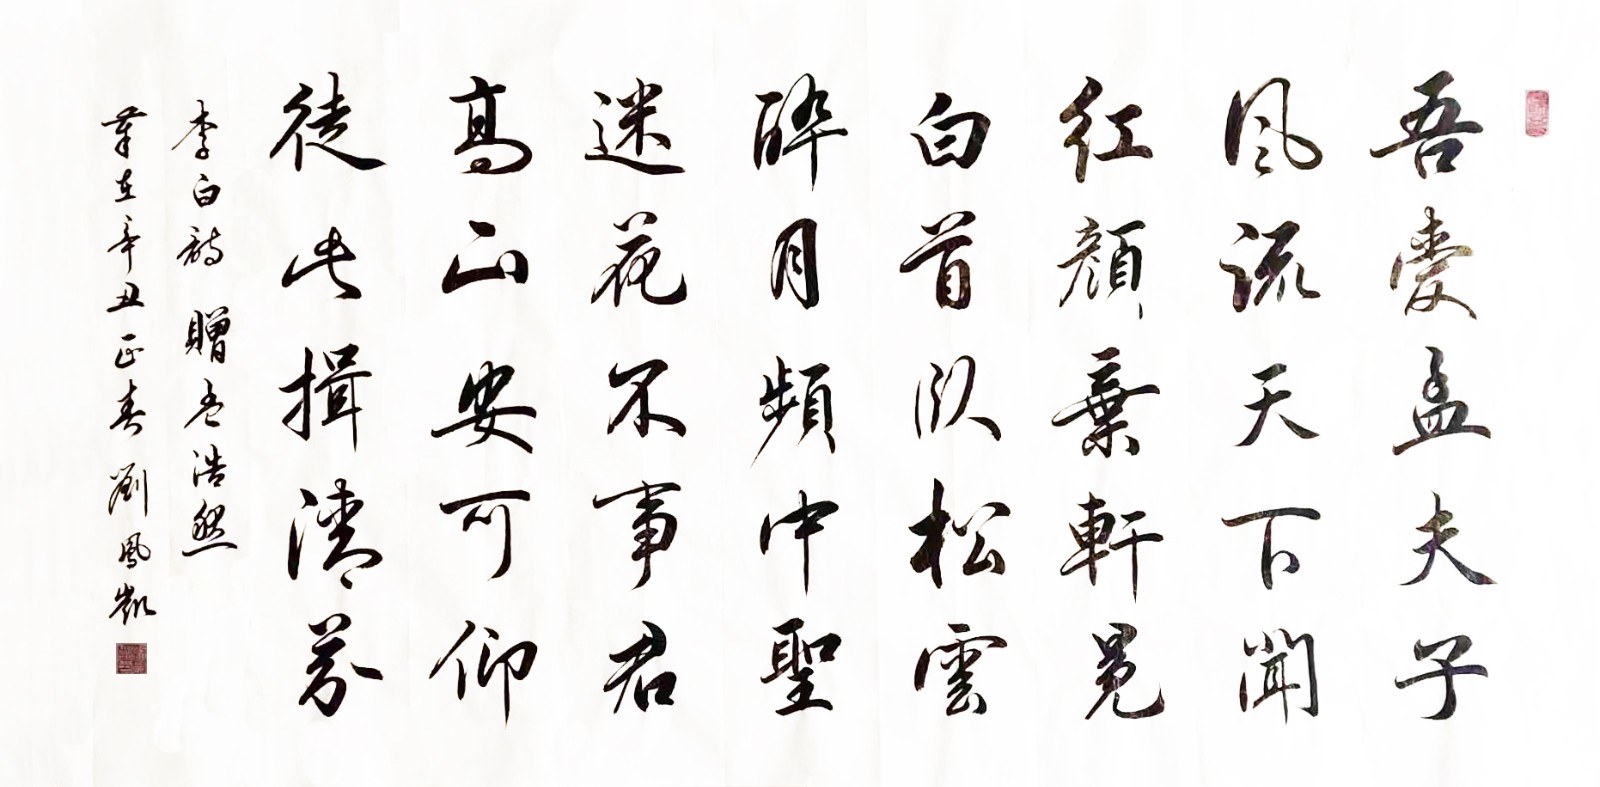 吾愛孟夫子
風流天下聞
紅顏棄軒冕
白首臥松雲
醉月頻中聖
迷花不事君
高山安可仰
徒此揖清芬
李白詩 贈孟浩然
歲在辛丑正春 劉鳳凱